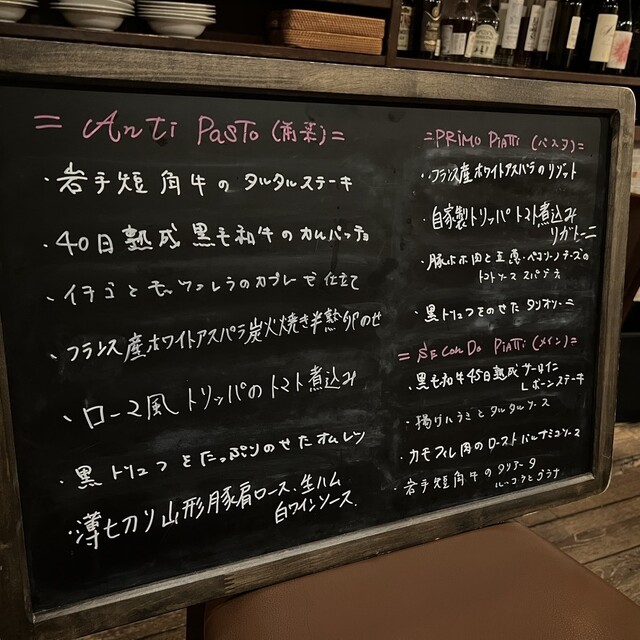 = Anti Pasto (前菜) =
・岩手短角牛のタルタルステーキ
・40日熟成黒毛和牛のカルパッチョ
・イチゴとモッツァレラのカプレーゼ仕立て
・フランス産ホワイトアスパラ炭火焼き半熟卵のせ
・ローマ風トリッパのトマト煮込み
・黒トリュフをたっぷりのせたオムレツ
・薄切り山形豚肩ロース、生ハム
白ワインソース
= PRIMO PIATTI (パスタ) =
・フランス産ホワイトアスパラのリゾット
・自家製トリッパトマト煮込み
リガトーニ
・豚ホホ肉と玉葱・ペコリーノチーズの
トマトソース スパゲティ
・黒トリュフをのせたタリオリーニ
= SECONDO PIATTI (メイン) =
・黒毛和牛45日熟成サーロイン
Lボーンステーキ
・揚げハラミとタルタルソース
・カモフィレ肉のロースト バルサミコソース
・岩手短角牛のタリアータ
ルーコラとグラナ